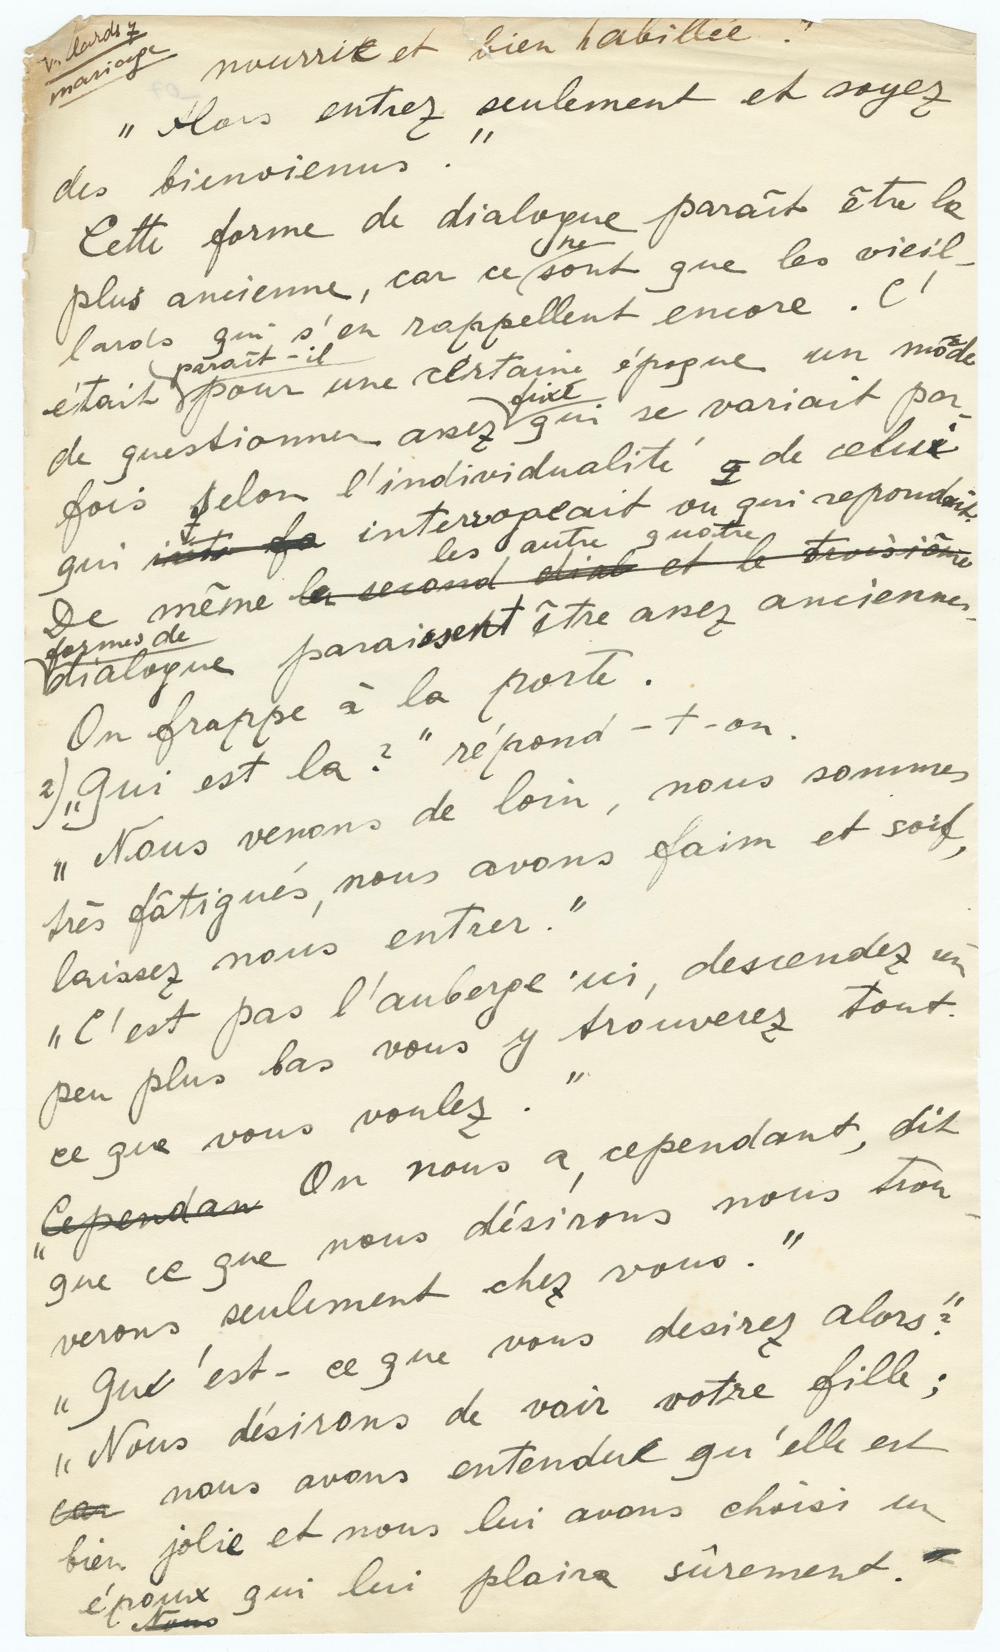 mariage
nourrie et bien habillée."
" Alors entrez seulement et soyez
des bienvienus."
Cette forme de dialogue paraît être la
ne
plus ancienne, car ce sont que les vieil-
lards qui s'en rappellent encore. C'
paraît-il
était pour une certaine époque un mode
fixé
de questionner assez qui se variait par-
fois selon l'individualité de celui
qui interrogeait ou qui repondait.
les autre quatre
De même le second dial et le troisième
formes de
dialogue paraissent être assez anciennes.
On frappe à la porte.
2) "Qui est la?" répond-t-on.
" Nous venons de loin, nous sommes
très fâtigués, nous avons faim et soif,
laissez nous entrer."
"C'est pas l'auberge ici, descendez un
peu plus bas vous y trouverez tout
ce que vous voulez."
Cependan On nous a, cependant, dit
"que ce que nous désirons nous trou-
verons seulement chez vous."
"Qu'est-ce que vous desirez alors?"
"Nous désirons de voir votre fille;
car nous avons entendue qu'elle est
bien jolie et nous lui avons choisi un
époux qui lui plaira sûrement."
Nous